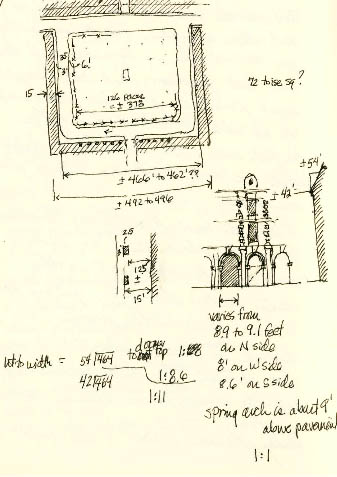 35'
3'
6'
15
126 paces
= ± 378
72 toise sq?
± 466' to 462'??
± 492 to 496
± 54'
± 42'
2.5
12.5'
±
15'
varies from
8.9 to 9.1 feet
on N side
8' on W side
8.6' on S side
ht to width = 54/464 to top 1:8.6
42/464 1:11
spring arch is about 9'
above pavement
1:1